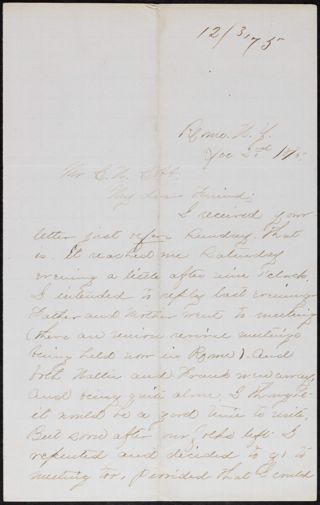 12/3/75
Rome. N. Y.
Dec 2nd 1875
Mr C. N.
My dear Friend:
I received your
letter just before Sunday. That
is. it reached me Saturday
evening a little after nine o'clock.
I intended to reply last evening
Father and Mother went to meeting
(there are union revival meetings
being held now in Rome). And
both Hattie and Frank were away.
And being quite alone I thought
it would be a good time to write.
But soon after our folks left I
repented and decided to go to
meeting too, provided that I could